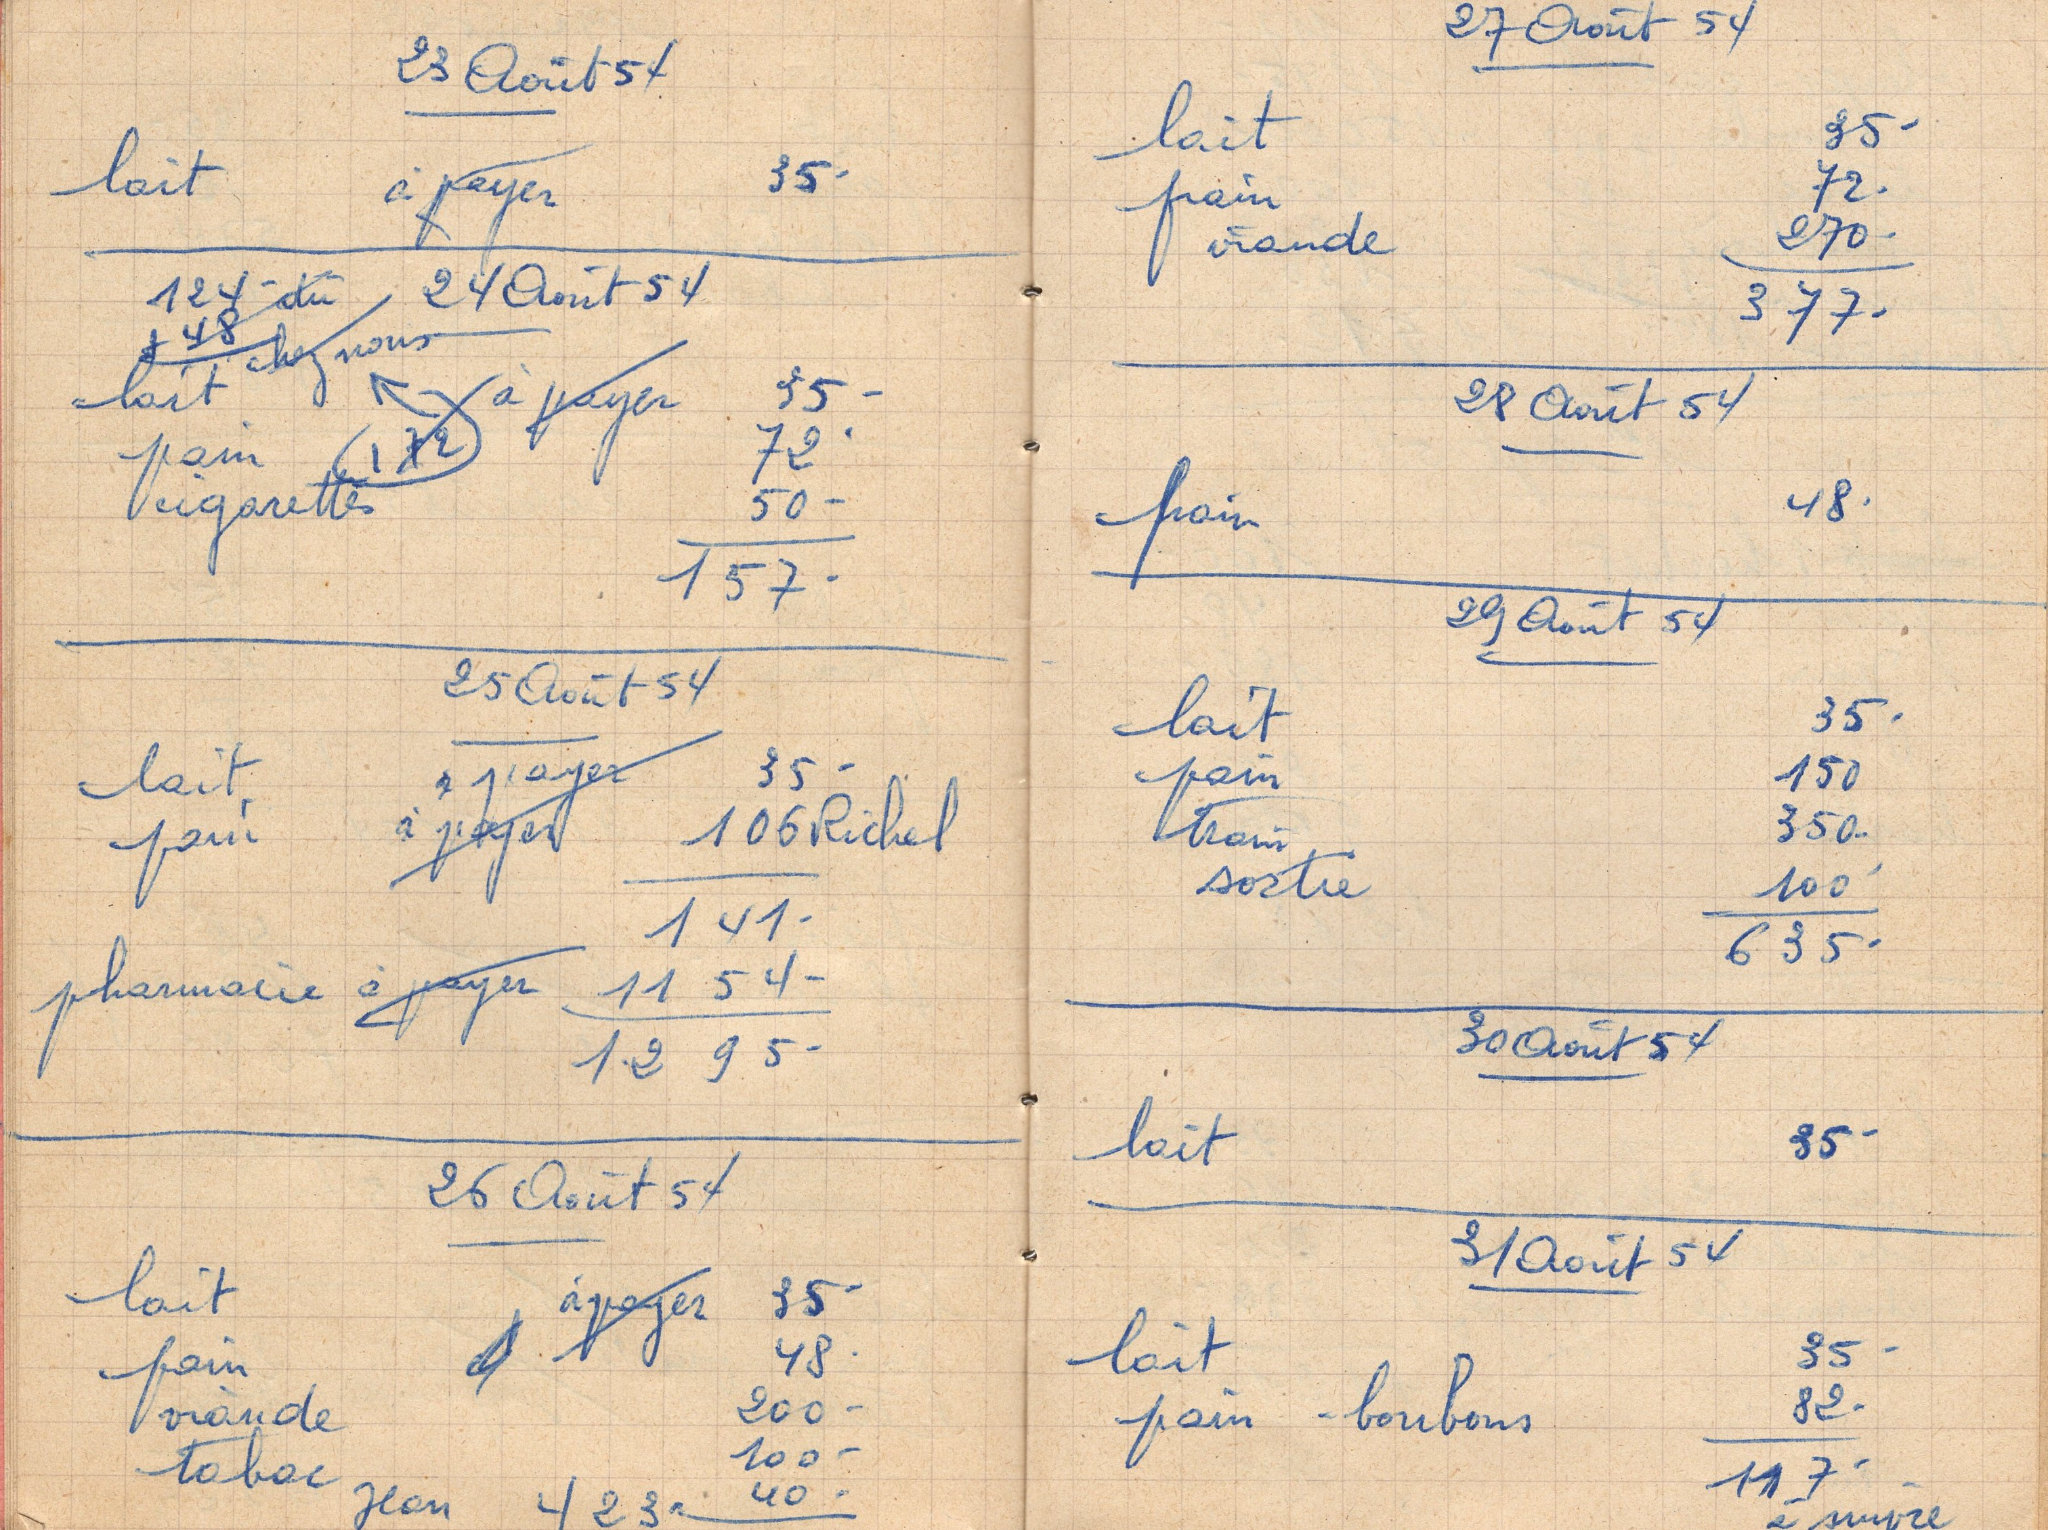 23 Août 54
lait à payer 35-
124- dû 24 Août 54
+ 48 chez nous
lait à payer 35-
pain 172 72-
cigarettes 50-
157-
25 Août 54
lait à payer 35-
pain à payer 106 Richel
141-
pharmacie à payer 1154-
1295-
26 Août 54
lait à payer 35-
pain 48-
viande 200-
tabac 100-
Jean 423- 40-
27 Août 54
lait 35-
pain 72-
viande 270-
377-
28 Août 54
pain 48-
29 Août 54
lait 35-
pain 150
train 350-
sortie 100-
635-
30 Août 54
lait 35-
31 Août 54
lait 35-
pain - bonbons 82-
117-
à suivre